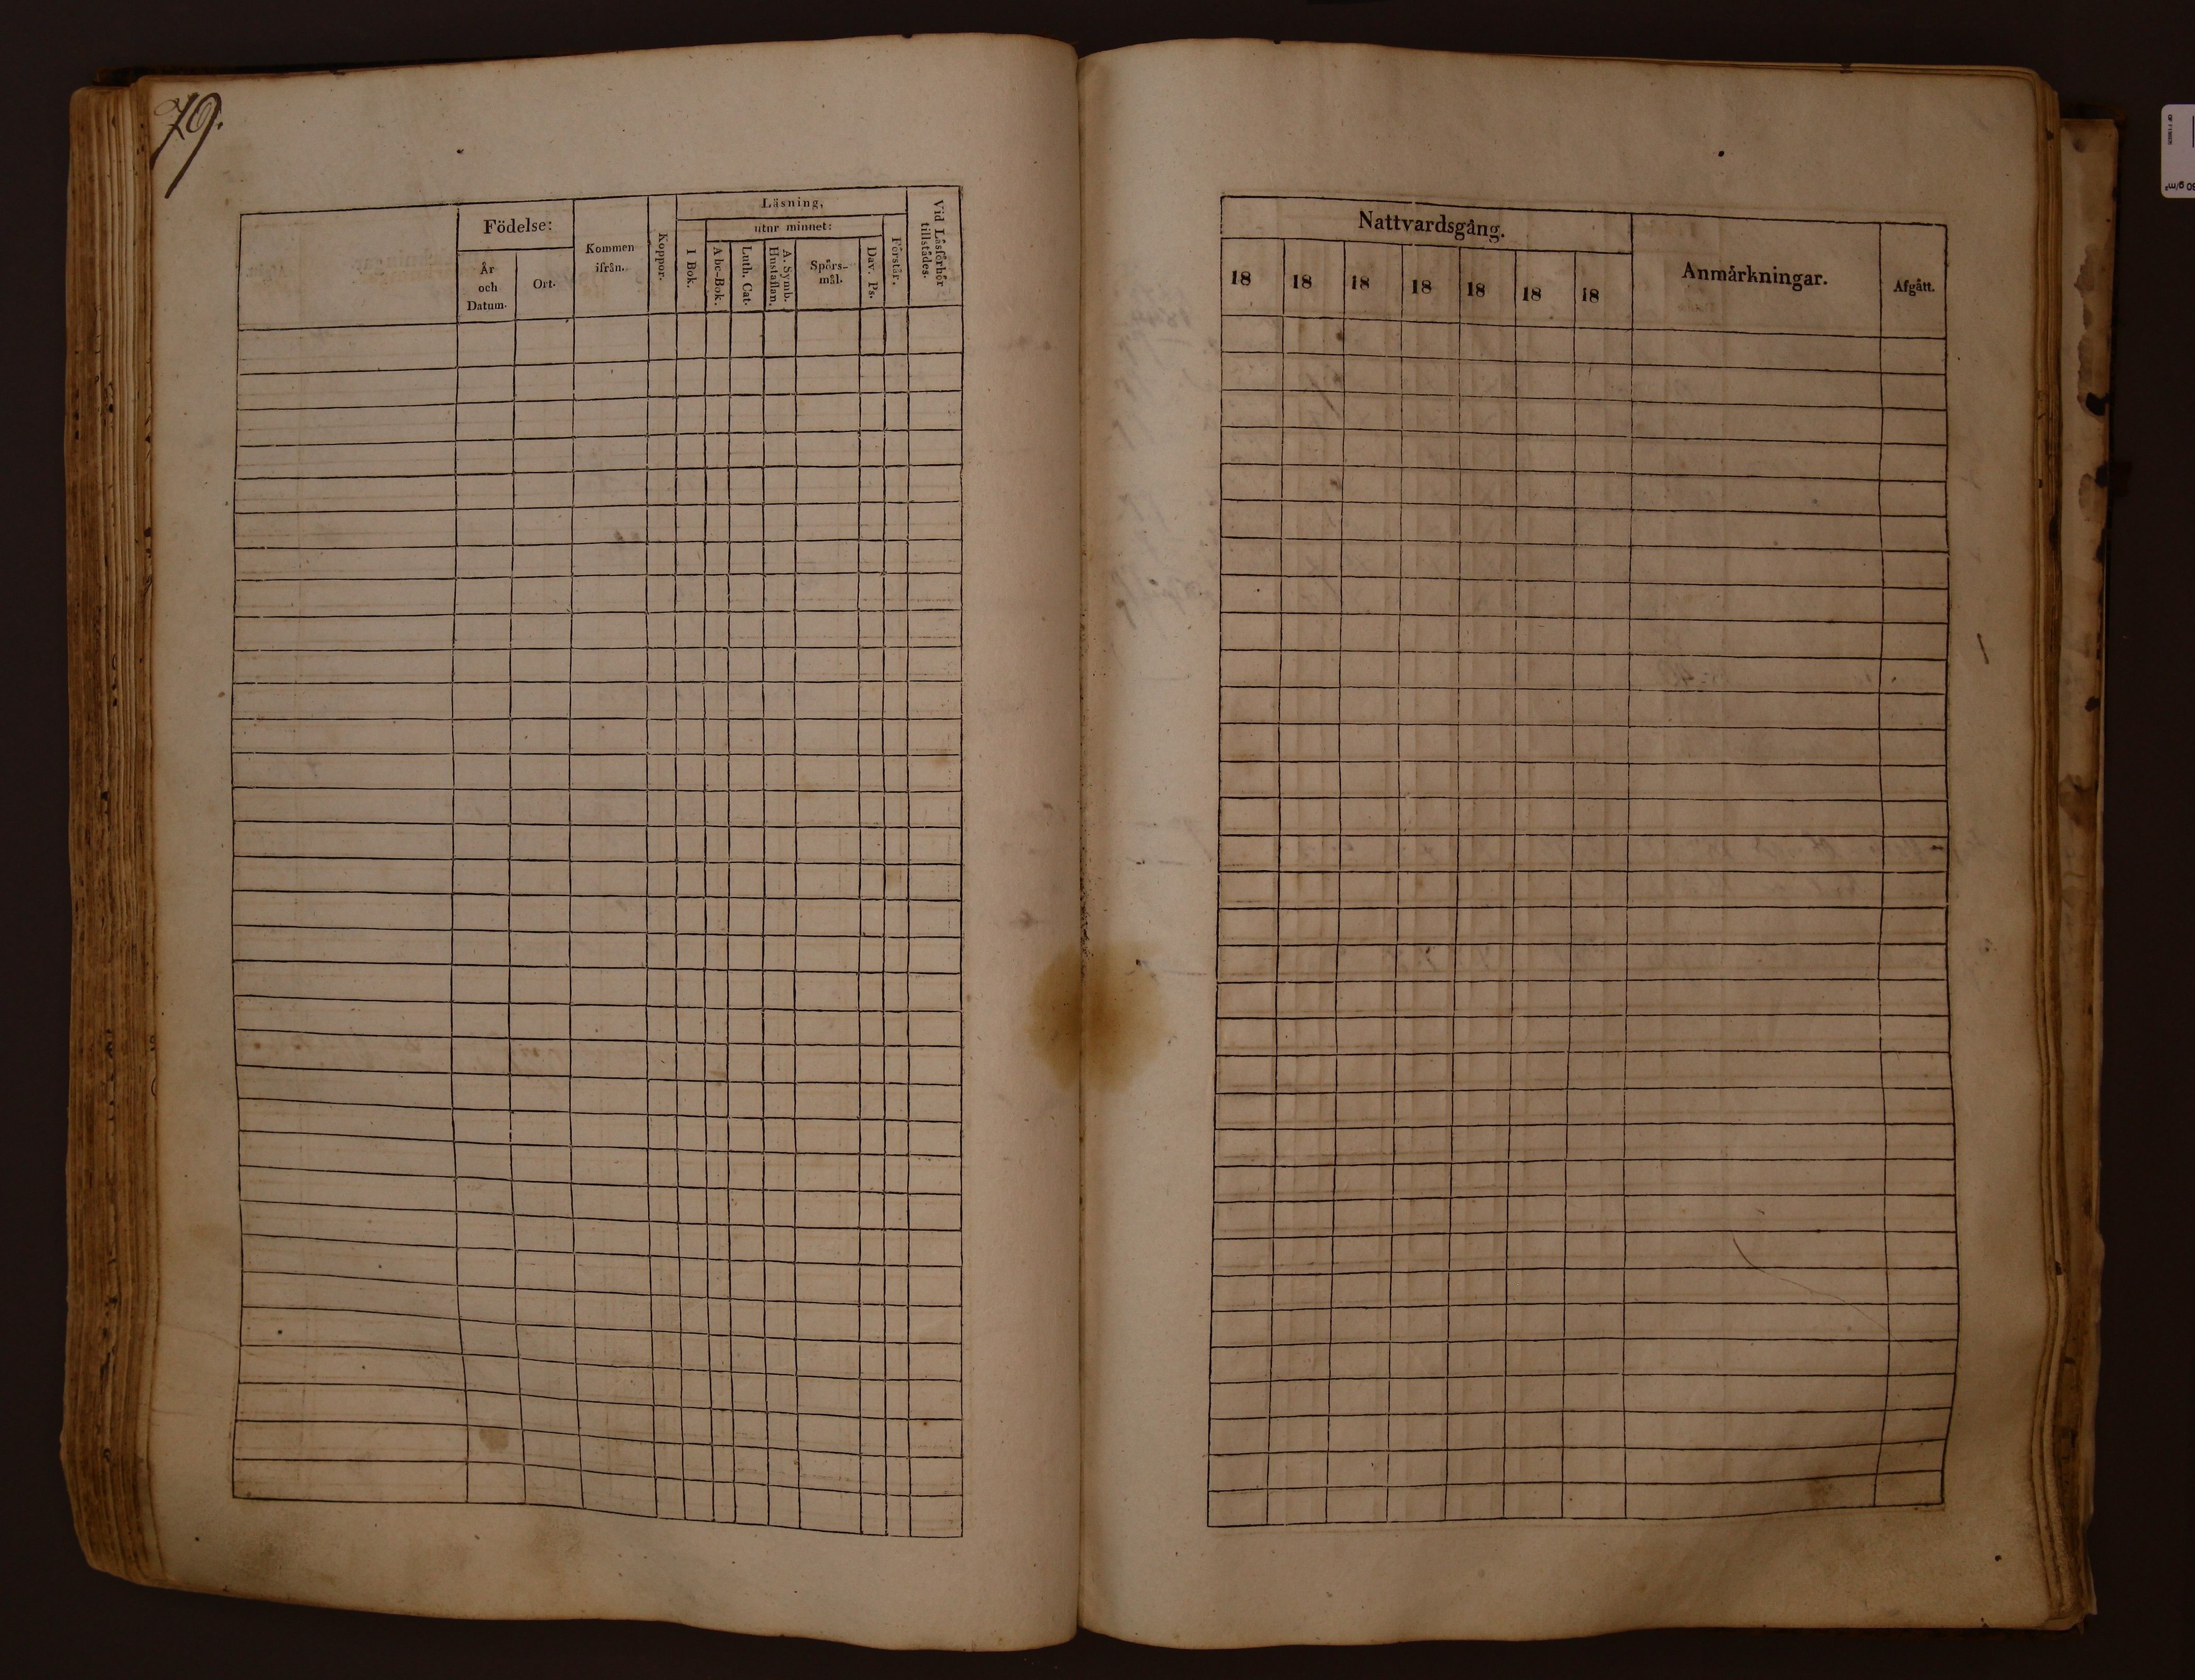 79.
Födelse:
År
och
Datum.
Ort.
Kommen
ifrån.
Koppor.
Läsning,
utur minnet:
I Bok.
Abc-Bok.
Luth. Cat.
A. Symb.
Hustaflan.
Spörs-
mål.
Dav. Ps.
Förstår.
Vid Läsförhör
tillstädes.
Nattvardsgång.
18 18 18 18 18 18 18
Anmärkningar.
Afgått.